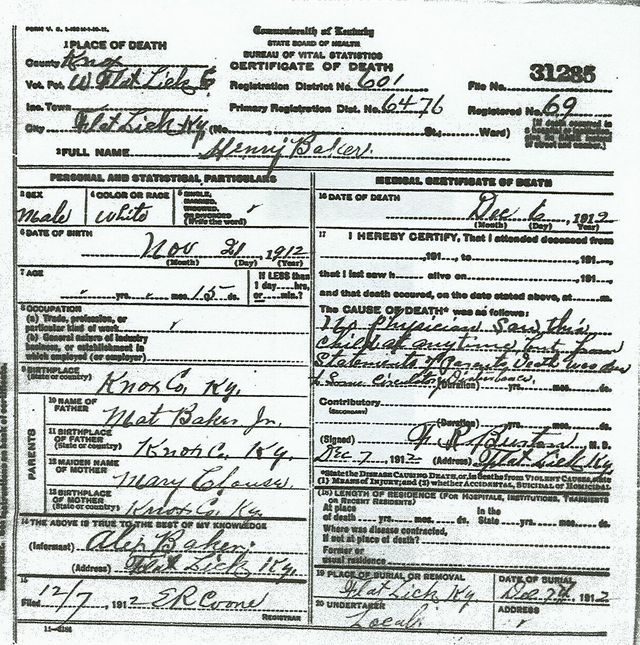 FORM V. S.
Commonwealth of Kentucky
STATE BOARD OF HEALTH
BUREAU OF VITAL STATISTICS
CERTIFICATE OF DEATH
1 PLACE OF DEATH
County Knox
Vot. Pct. W Flat Lick 6
Inc. Town
City Flat Lick Ky (No. St.; Ward)
Registration District No. 601
Primary Registration Dist. No. 6476
File No. 31285
Registered No. 69
[If death occurred in a hospital or institution give its NAME instead of street and number.]
2 FULL NAME Henry Baker.
PERSONAL AND STATISTICAL PARTICULARS
3 SEX
Male
4 COLOR OR RACE
White
5 SINGLE, MARRIED, WIDOWED, OR DIVORCED (Write the word)
6 DATE OF BIRTH
Nov 21, 1912
(Month) (Day) (Year)
7 AGE
yrs. mos. 15 ds.
IF LESS than 1 day....hrs, or....min.?
8 OCCUPATION
(a) Trade, profession, or particular kind of work
(b) General nature of industry business, or establishment in which employed (or employer)
9 BIRTHPLACE
(State or country)
Knox Co, Ky.
PARENTS
10 NAME OF FATHER
Mat Baker Jr.
11 BIRTHPLACE OF FATHER
(State or country)
Knox Co. Ky.
12 MAIDEN NAME OF MOTHER
Mary Clouse
13 BIRTHPLACE OF MOTHER
(State or country)
Knox Co. Ky.
14 THE ABOVE IS TRUE TO THE BEST OF MY KNOWLEDGE
(Informant) Alex Baker.
(Address) Flat Lick Ky.
15
Filed 12/7, 1912 E R Coone
REGISTRAR
11-3184
MEDICAL CERTIFICATE OF DEATH
16 DATE OF DEATH
Dec 6, 1912
(Month) (Day) (Year)
17 I HEREBY CERTIFY, That I attended deceased from
, 191 , to , 191 ,
that I last saw h alive on , 191 ,
and that death occurred, on the date stated above, at m.
The CAUSE OF DEATH* was as follows:
No Physician Saw this
child at anytime but from
Statements of parents death was due
to Some circulatory disturbance.
(Duration) yrs. mos. ds.
Contributory
(SECONDARY)
(Duration) yrs. mos. ds.
(Signed) F. R. Burton, M. D.
Dec 7, 1912 (Address) Flat Lick Ky
*State the DISEASE CAUSING DEATH, or, in deaths from VIOLENT CAUSES, state (1) MEANS OF INJURY; and (2) whether ACCIDENTAL, SUICIDAL or HOMICIDAL
(18) LENGTH OF RESIDENCE (FOR HOSPITALS, INSTITUTIONS, TRANSIENTS OR RECENT RESIDENTS)
At place of death yrs. mos. ds.
In the State yrs. mos. ds.
Where was disease contracted, If not at place of death?
Former or usual residence
19 PLACE OF BURIAL OR REMOVAL
Flat Lick Ky.
DATE OF BURIAL
Dec 7th, 1912
20 UNDERTAKER
Local
ADDRESS